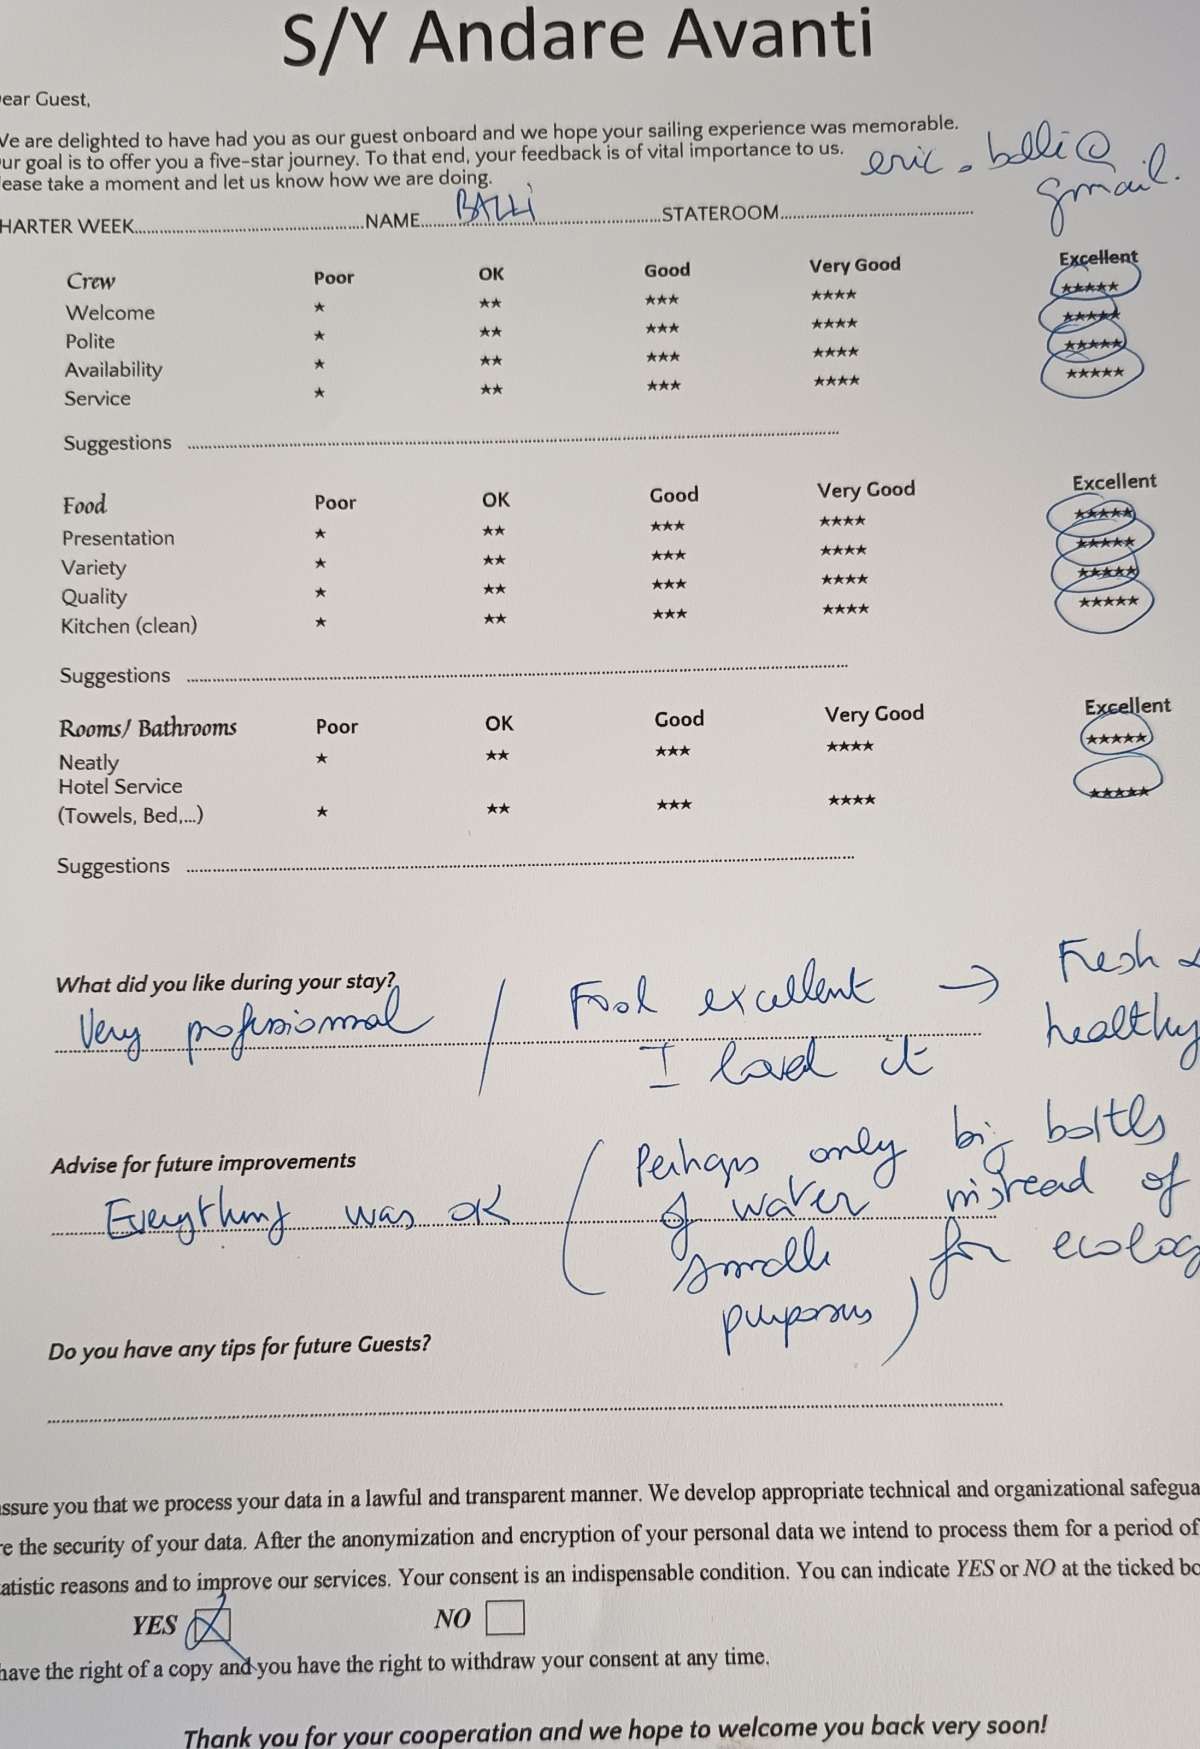 S/Y Andare Avanti
ear Guest,
We are delighted to have had you as our guest onboard and we hope your sailing experience was memorable.
ur goal is to offer you a five-star journey. To that end, your feedback is of vital importance to us.
ease take a moment and let us know how we are doing.
eric.balli@
gmail.
HARTER WEEK NAME BALLi STATEROOM
Crew Poor OK Good Very Good Excellent
Welcome ★ ★★ ★★★ ★★★★ ★★★★★
Polite ★ ★★ ★★★ ★★★★ ★★★★★
Availability ★ ★★ ★★★ ★★★★ ★★★★★
Service ★ ★★ ★★★ ★★★★ ★★★★★
Suggestions
Food Poor OK Good Very Good Excellent
Presentation ★ ★★ ★★★ ★★★★ ★★★★★
Variety ★ ★★ ★★★ ★★★★ ★★★★★
Quality ★ ★★ ★★★ ★★★★ ★★★★★
Kitchen (clean) ★ ★★ ★★★ ★★★★ ★★★★★
Suggestions
Rooms/ Bathrooms Poor OK Good Very Good Excellent
Neatly ★ ★★ ★★★ ★★★★ ★★★★★
Hotel Service
(Towels, Bed,...) ★ ★★ ★★★ ★★★★ ★★★★★
Suggestions
What did you like during your stay?
Very professionnal / Food excellent → Fresh &
I loved it healthy
Advise for future improvements
Everything was OK (Perhaps only big bottles
of water instead of
smalls for ecolog
purposes)
Do you have any tips for future Guests?
assure you that we process your data in a lawful and transparent manner. We develop appropriate technical and organizational safegua
re the security of your data. After the anonymization and encryption of your personal data we intend to process them for a period of
atistic reasons and to improve our services. Your consent is an indispensable condition. You can indicate YES or NO at the ticked bo
YES NO
have the right of a copy and you have the right to withdraw your consent at any time.
Thank you for your cooperation and we hope to welcome you back very soon!